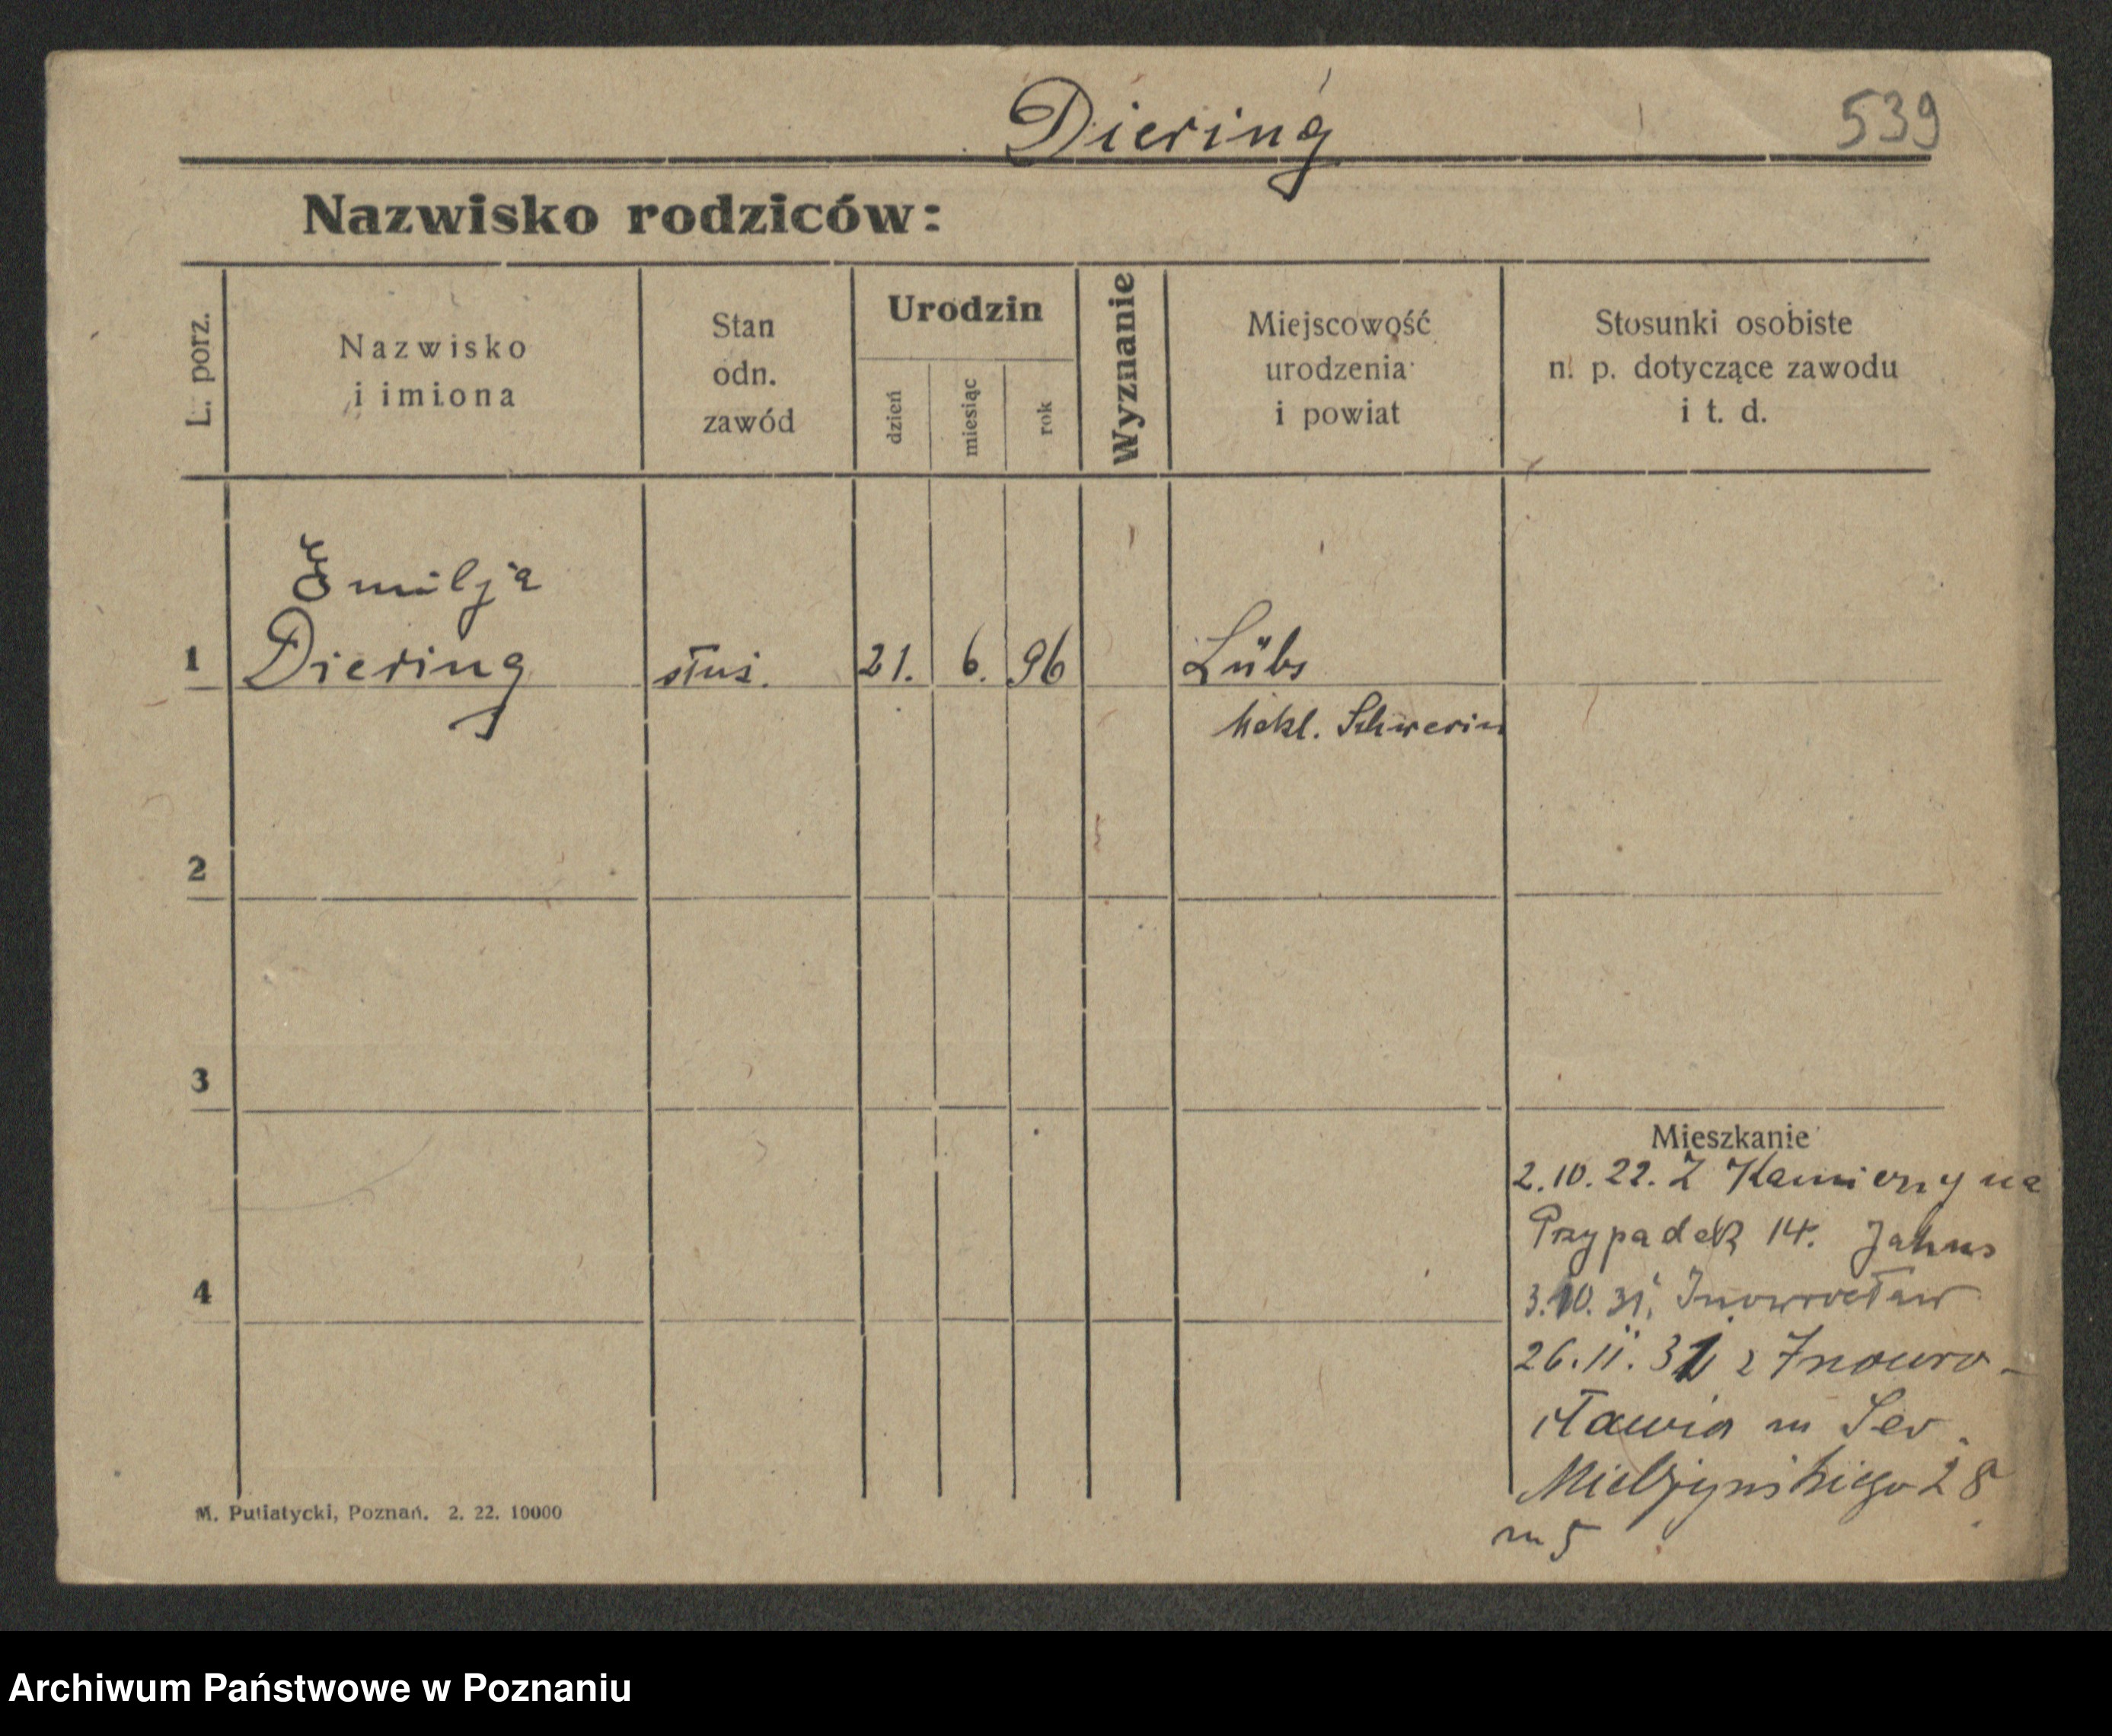 Diering
539
Nazwisko rodziców:
L. porz.
Nazwisko
i imiona
Stan
odn.
zawód
Urodzin
dzień
miesiąc
rok
Wyznanie
Miejscowość
urodzenia
i powiat
Stosunki osobiste
n. p. dotyczące zawodu
i t. d.
Emilja
1 Diering służ. 21. 6. 96 Lübs
Mekl. Schwerin
2
3
Mieszkanie
2.10.22. Z
Przypadek 14. Jahns
4
3.10.31. Inowrocław
26.11.31 z Inowro-
cławia
Mielżyńskiego 28
m 5
M. Putiatycki, Poznań. 2. 22. 10000
Archiwum Państwowe w Poznaniu